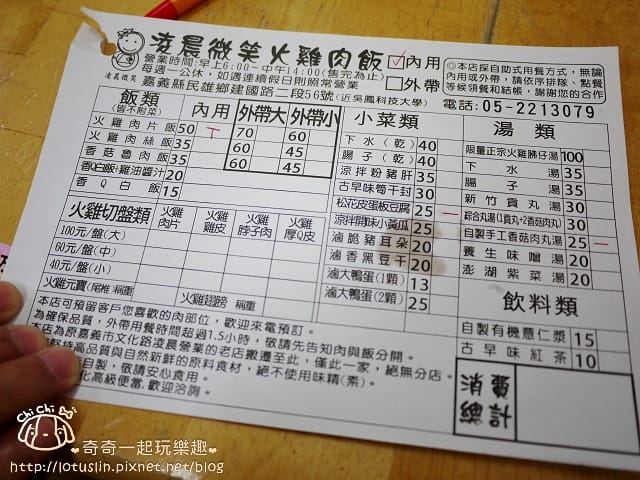 凌晨微笑火雞肉飯
凌晨微笑
營業時間:早上6:00~中午14:00(售完為止)
每週一公休,如遇連續假日則照常營業
嘉義縣民雄鄉建國路二段56號(近吳鳳科技大學)
內用
外帶
◎本店採自助式用餐方式,無論
內用或外帶,請依序排隊、點餐
等候領餐和結帳,謝謝您的合作
電話:05-2213079
飯類
(皆不附菜)
內用 外帶大 外帶小
火雞肉片飯 50 70 60
火雞肉絲飯 35 60 45
香菇魯肉飯 35 60 45
香Q白飯+雞油醬汁 20
香Q白飯 15
火雞切盤類
火雞肉片 火雞雞皮 火雞脖子肉 火雞厚Q皮
100元/盤(大)
60元/盤(中)
40元/盤(小)
火雞元寶(尾椎)稱重
火雞翅膀 稱重
小菜類
下水(乾) 40
腸子(乾) 40
涼拌粉豬肝 35
古早味筍干封 30
松花皮蛋板豆腐 25
涼拌開味小黃瓜 25
滷脆豬耳朵 20
滷香黑豆干 20
滷大鴨蛋(1顆) 13
滷大鴨蛋(2顆) 25
湯類
限量正宗火雞胇仔湯 100
下水湯 35
腸子湯 35
新竹貢丸湯 30
綜合丸湯(1貢丸+2香菇肉丸) 30
自製手工香菇肉丸湯 25
養生味噌湯 20
澎湖紫菜湯 20
飲料類
自製有機薏仁漿 15
古早味紅茶 10
消費總計
本店可預留客戶您喜歡的肉部位,歡迎來電預訂。
為確保品質,外帶用餐時間超過1.5小時,敬請先告知肉與飯分開。
本店為原嘉義市文化路凌晨營業的老店搬遷至此,僅此一家,絕無分店。
堅持高品質與自然新鮮的原料食材,絕不使用味精(素)。
自製,敬請安心食用。
化高級便當,歡迎洽詢。
Chi Chi
奇奇一起玩樂趣
http://lotuslin.pixnet.net/blog